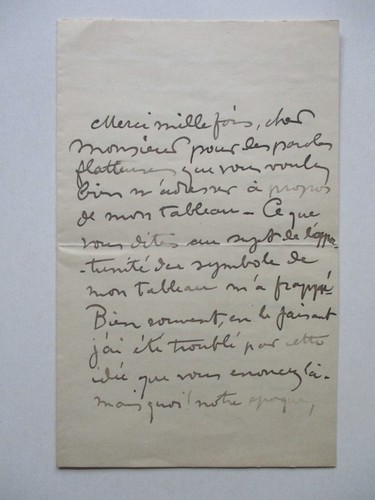 Merci mille fois, cher
monsieur pour les paroles
flatteuses que vous voulez
bien m'adresser à propos
de mon tableau - Ce que
vous dites au sujet de l'oppor-
-tunité du symbole de
mon tableau m'a frappé.
Bien souvent, en le faisant
j'ai été troublé par cette
idée que vous énoncez là -
mais quoi! notre époque,